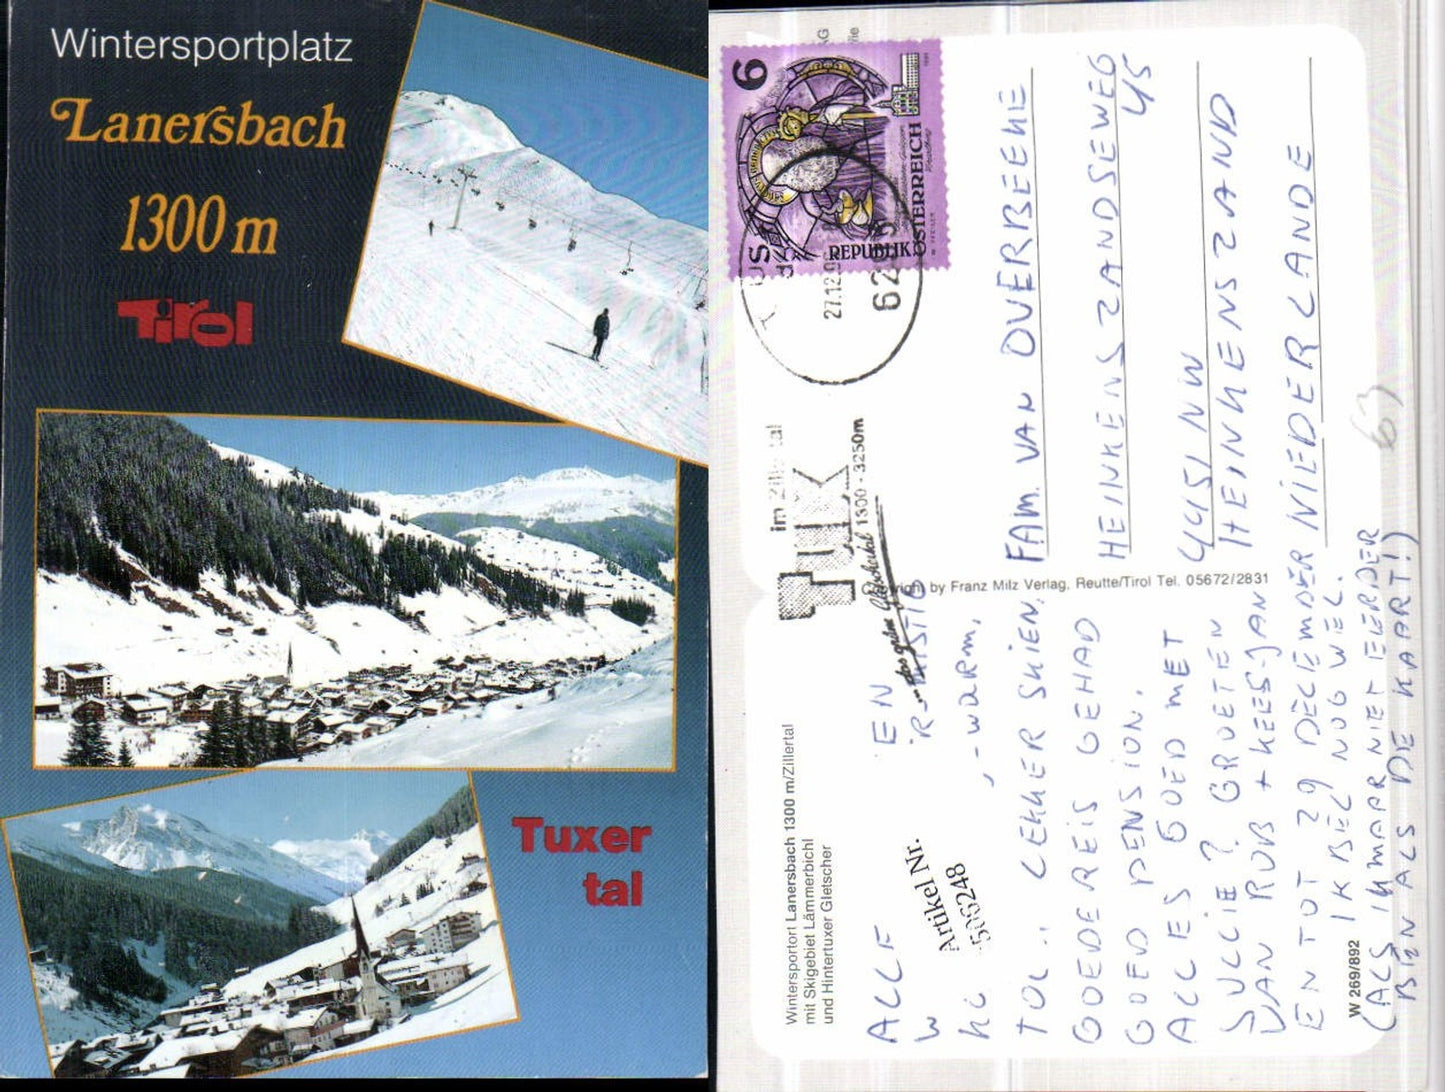 Wintersportplatz
Lanersbach
1300 m
Tirol
Tuxer
tal
6
REPUBLIK
ÖSTERREICH
27.12.
im Zillertal
TUX
1300 - 3250m
FAM. VAN OVERBEEKE
HEINKENSZANDSEWEG
45
4451 NW
HEINKENSZAND
NIEDERLANDE
Copyright by Franz Milz Verlag, Reutte/Tirol Tel. 05672/2831
Wintersportort Lanersbach 1300 m/Zillertal
mit Skigebiet Lämmerbichl
und Hintertuxer Gletscher
Artikel Nr.
500248
EN
WARM,
LEKKER SKIEN,
GOEDE REIS GEHAD
GOED PENSION.
ALLES GOED MET
JULLIE? GROETEN
VAN ROB + KEES-JAN
EN TOT 29 DECIEMBER
IK BEL NOG WEL.
(ALS IK MAAR NIET EERDER
BEN ALS DE KAART!)
W 269/892
63